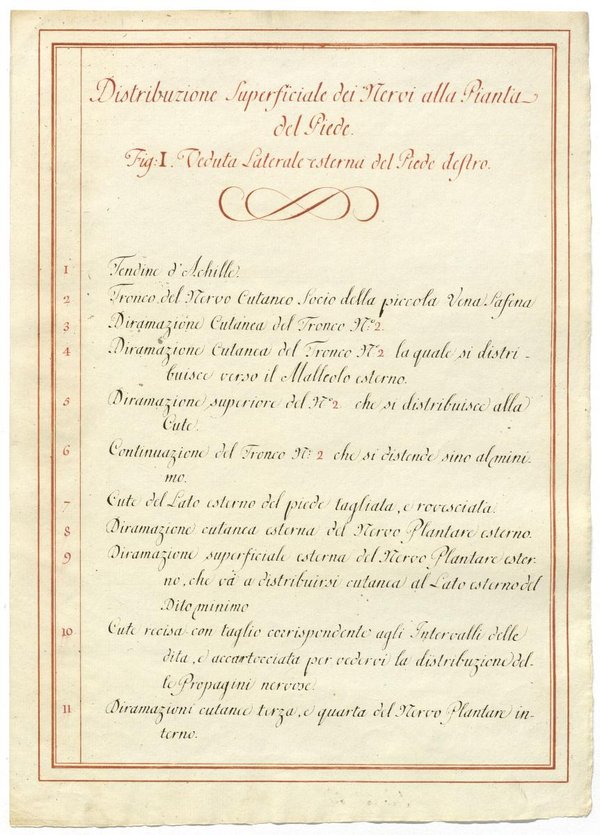 Distribuzione Superficiale dei Nervi alla Pianta
del Piede.
Fig: I. Veduta Laterale esterna del Piede destro.
1 Tendine d'Achille.
2 Tronco del Nervo Cutaneo Socio della piccola Vena Safena
3 Diramazione Cutanea del Tronco N.o 2.
4 Diramazione Cutanea del Tronco N.o 2 la quale si distri-
buisce verso il Malleolo esterno.
5 Diramazione superiore del N.o 2 che si distribuisce alla
Cute.
6 Continuazione del Tronco N.o 2 che si distende sino al mini-
mo.
7 Cute del Lato esterno del piede tagliata, e rovesciata.
8 Diramazione cutanea esterna del Nervo Plantare esterno.
9 Diramazione superficiale esterna del Nervo Plantare ester-
no, che và a distribuirsi cutanea al Lato esterno del
Dito minimo
10 Cute recisa con taglio corrispondente agli Intervalli delle
dita, e accartocciata per vedervi la distribuzione del-
le Propagini nervose.
11 Diramazioni cutanee terza, e quarta del Nervo Plantare in-
terno.